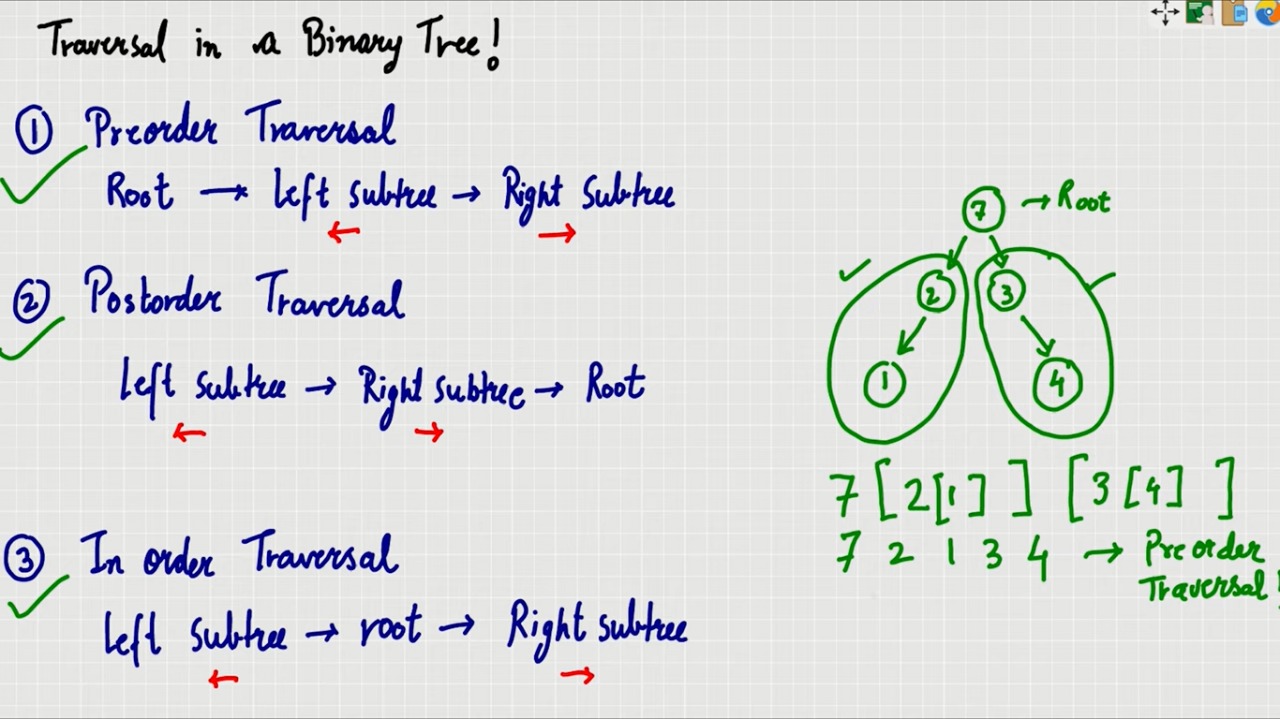 Traversal in a Binary Tree!
① Preorder Traversal
Root → left subtree → Right Subtree
② Postorder Traversal
left subtree → Right subtree → Root
③ In order Traversal
left subtree → root → Right subtree
7 → Root
2 3
1 4
7 [2[1] ] [3[4] ]
7 2 1 3 4 → Preorder
Traversal!